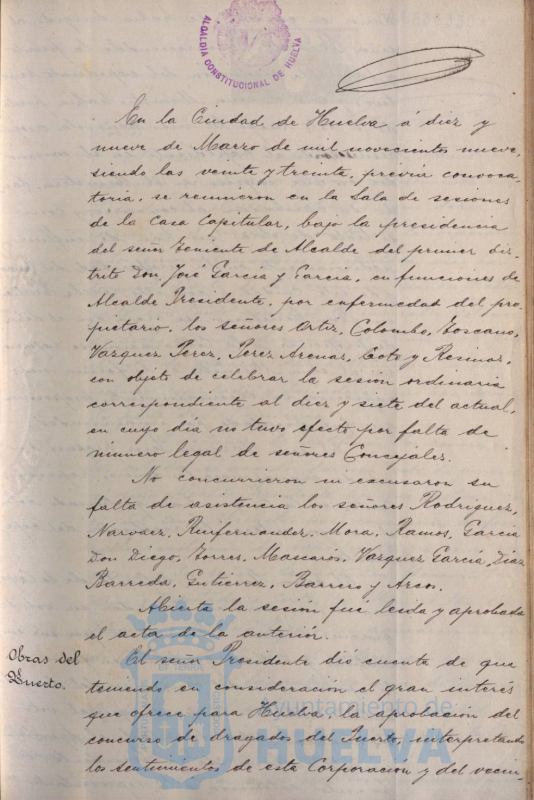 ALCALDIA CONSTITUCIONAL DE HUELVA
En la Ciudad de Huelva á diez y
nueve de Marzo de mil novecientos nueve,
siendo las veinte y treinta, previa convoca-
toria, se reunieron en la Sala de sesiones
de la Casa Capitular, bajo la presidencia
del señor Teniente de Alcalde del primer dis-
trito Don José García y García, en funciones de
Alcalde Presidente, por enfermedad del pro-
pietario, los señores Ortiz, Colombo, Toscano,
Vazquez Perez, Perez Arenas, Coto y Resinas,
con objeto de celebrar la sesión ordinaria
correspondiente al diez y siete del actual,
en cuyo dia no tuvo efecto por falta de
número legal de señores Concejales.
No concurrieron ni excusaron su
falta de asistencia los señores Rodriguez,
Narvaez, Ruifernandez, Mora, Ramos, Garcia
Don Diego, Torres, Mascarós, Vazquez García, Diaz
Barreda, Gutierrez, Barrero y Arcos.
Abierta la sesión fué leida y aprobada
el acta de la anterior.
Obras del
Puerto.
El señor Presidente dió cuenta de que
teniendo en consideración el gran interés
que ofrece para Huelva, la aprobación del
concurso de dragados del Puerto, interpretando
los sentimientos de esta Corporación y del vecin-
Ayuntamiento de
HUELVA